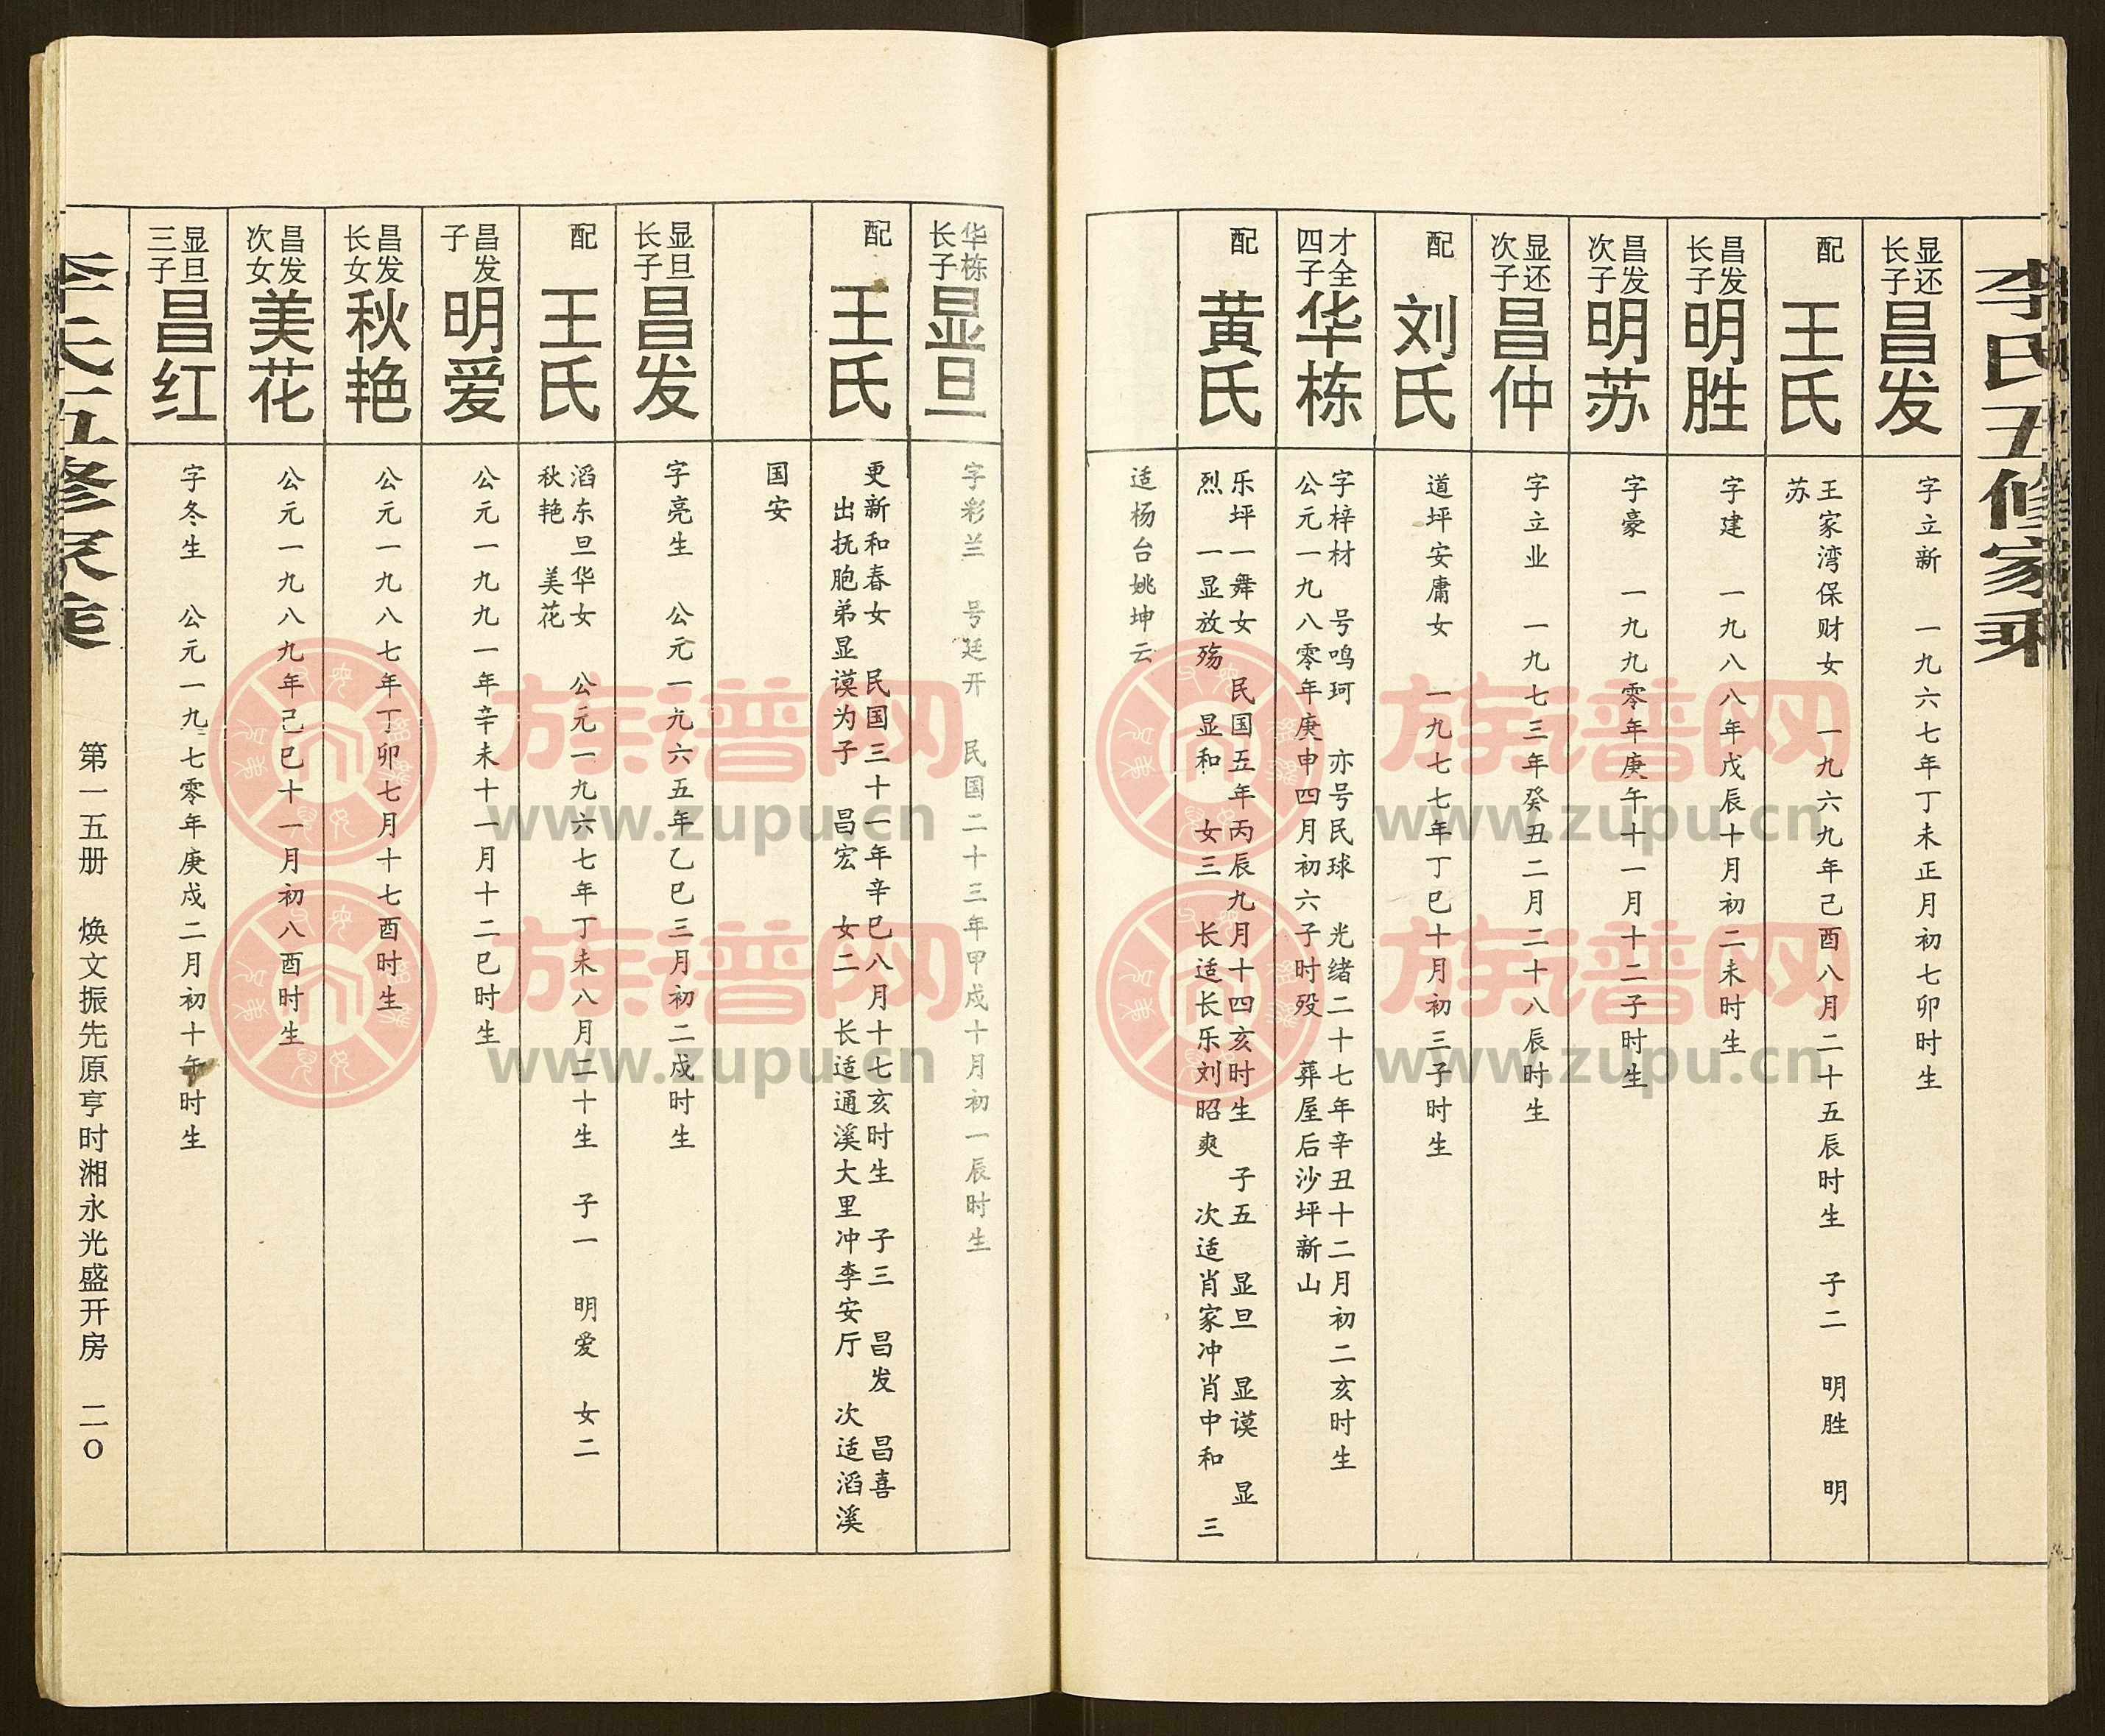 李氏五修家乘
显还
长子
昌发
字立新 一九六七年丁未正月初七卯时生
配
王氏
王家湾保财女 一九六九年己酉八月二十五辰时生 子二 明胜 明
苏
昌发
长子
明胜
字建 一九八八年戊辰十月初二未时生
昌发
次子
明苏
字豪 一九九零年庚午十一月十二子时生
显还
次子
昌仲
字立业 一九七三年癸丑二月二十八辰时生
配
刘氏
道坪安庸女 一九七七年丁巳十月初三子时生
才全
四子
华栋
字梓材 号鸣珂 亦号民球 光绪二十七年辛丑十二月初二亥时生
公元一九八零年庚申四月初六子时殁 葬屋后沙坪新山
配
黄氏
乐坪一舞女 民国五年丙辰九月十四亥时生 子五 显旦 显谟 显
烈 一显放殇 显和 女三 长适长乐刘昭爽 次适肖家冲肖中和 三
适杨台姚坤云
华栋
长子
显旦
字彩兰 号廷开 民国二十三年甲戌十月初一辰时生
配
王氏
更新和春女 民国三十一年辛巳八月十七亥时生 子三 昌发 昌喜
出抚胞弟显谟为子 昌宏 女二 长适通溪大里冲李安厅 次适滔溪
国安
显旦
长子
昌发
字亮生 公元一九六五年乙巳三月初二戌时生
配
王氏
滔东旦华女 公元一九六七年丁未八月二十生 子一 明爱 女二
秋艳 美花
昌发
子
明爱
公元一九九一年辛未十一月十二巳时生
昌发
长女
秋艳
公元一九八七年丁卯七月十七酉时生
昌发
次女
美花
公元一九八九年己巳十一月初八酉时生
显旦
三子
昌红
字冬生 公元一九七零年庚戌二月初十午时生
李氏五修家乘
第一五册 焕文振先原亨时湘永光盛开房 二〇
族谱网
www.zupu.cn
族谱网
www.zupu.cn
族谱网
www.zupu.cn
族谱网
www.zupu.cn